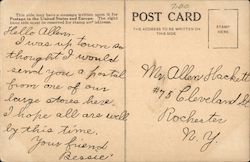 This side may have a message written upon it for
Postage in the United States and Europe. The right
hand side must be reserved for stamp and address.
POST CARD
THE ADDRESS TO BE WRITTEN ON
THIS SIDE
Hello Allen,
I was up town so
thought I would
send you a postal
from one of our
large stores here.
I hope all are well
by this time,
Your friend
Bessie
Mr. Allen Hackett
#75 Cleveland St
Rochester
N.Y.